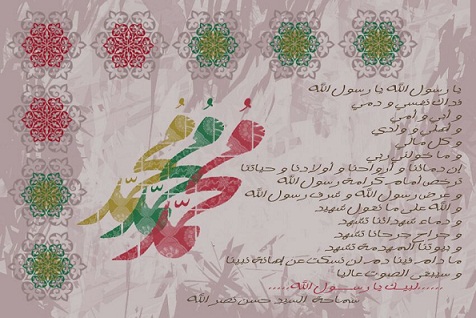 محمد
محمد
محمد
يا رسول الله يا رسول الله
فداك نفسي و دمي
و أبي و أمي
و أهلي و ولدي
و كل مالي
و ما خولني ربي
إن دماءنا و أرواحنا و أولادنا و حياتنا
ترخص أمام كرامة رسول الله
و عرض رسول الله و شرف رسول الله
و الله على ما نقول شهيد
و دماء شهدائنا تشهد
و جراح جرحانا تشهد
و بيوتنا المهدمة تشهد
ما دام فينا دم لن نسكت عن إهانة نبينا
و سيبقى الصوت عاليا
......لبيك يا رســول الله......
سماحة السيد حسن نصر الله